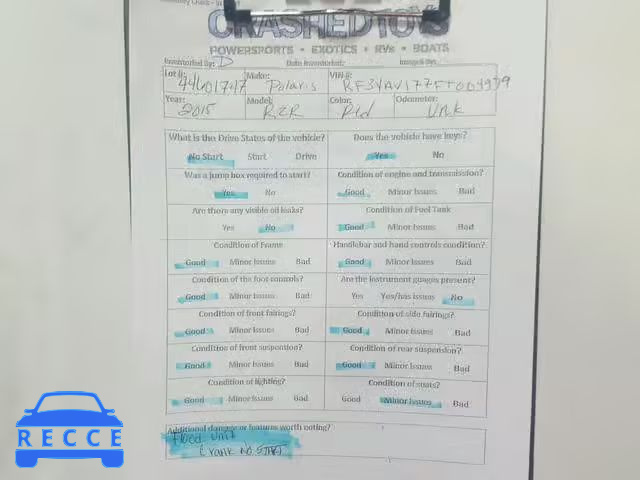 CRASHEDTOYS
POWERSPORTS • EXOTICS • RVs • BOATS
Inventoried By: D Date Inventoried: Imaged By:
Lot #: 44601747 Make: Polaris VIN #:
Year: 2015 Model: RZR Color: Red Odometer: Unk
What is the Drive Status of the vehicle? Does the vehicle have keys?
No Start Start Drive Yes No
Was a jump box required to start? Condition of engine and transmission?
Yes No Good Minor Issues Bad
Are there any visible oil leaks? Condition of Fuel Tank
Yes No Good Minor Issues Bad
Condition of Frame Handlebar and hand controls condition?
Good Minor Issues Bad Good Minor Issues Bad
Condition of the foot controls? Are the instrument guages present?
Good Minor Issues Bad Yes Yes/has issues No
Condition of front fairings? Condition of side fairings?
Good Minor Issues Bad Good Minor Issues Bad
Condition of front suspention? Condition of rear suspension?
Good Minor Issues Bad Good Minor Issues Bad
Condition of lighting? Condition of seats?
Good Minor Issues Bad Good Minor Issues Bad
Additional damage or features worth noting?
Flood unit
Crank no START
RECCE